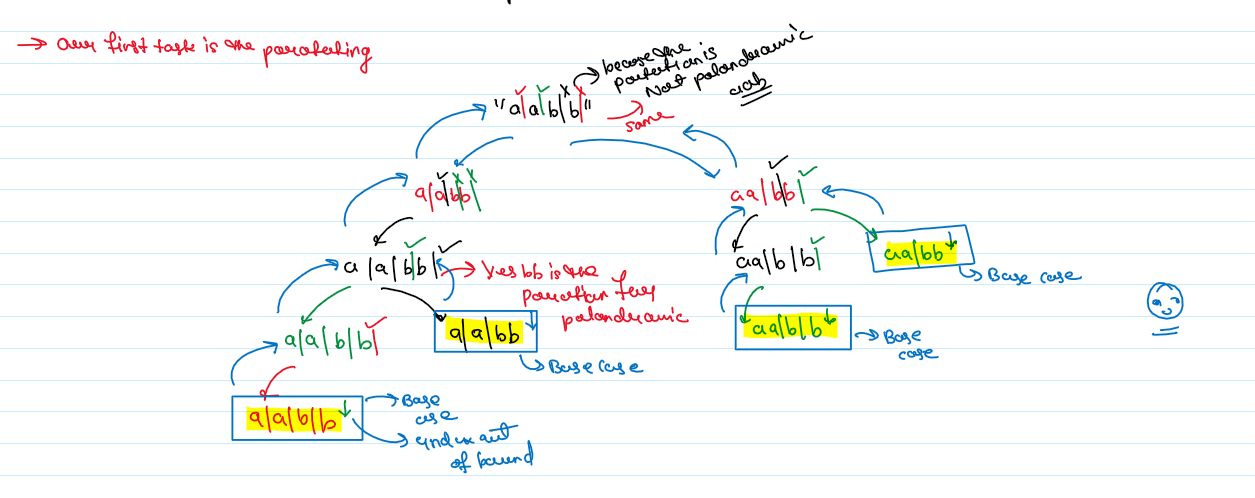 → our first task is the parateting
because the
partetion is
Not palandramic
aab
"a|a|b|b|"
same
a|a|bb|
aa|b|b|
a|a|b|b|
Yes bb is the
parcetian fey
palandramic
aa|b|b|
aa|bb
Base case
a|a|b|b|
a|a|bb
Base case
aa|b|b
Base
case
a|a|b|b
Base
case
index out
of bound